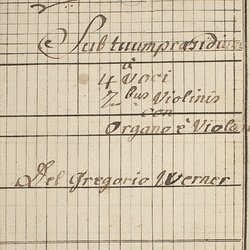 Sub tuum præsidium
a
4 Voci
2bus Violinis
con
Organo è Violone
Del Gregorio Werner